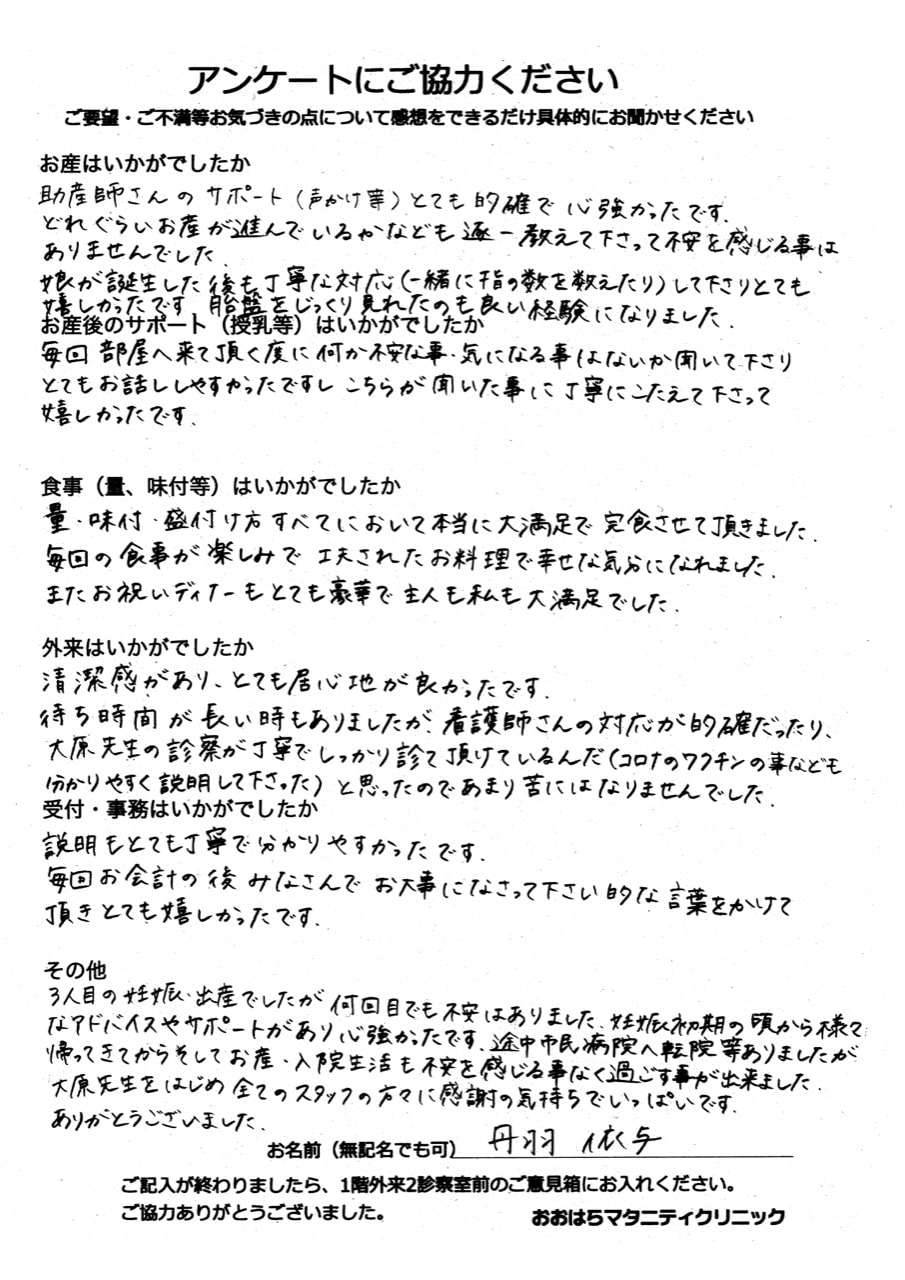 アンケートにご協力ください
ご要望・ご不満等お気づきの点について感想をできるだけ具体的にお聞かせください
お産はいかがでしたか
助産師さんのサポート(声かけ等)とても的確で心強かったです.
どれぐらいお産が進んでいるかなども逐一教えて下さって不安を感じる事は
ありませんでした.
娘が誕生した後も丁寧な対応(一緒に指の数を数えたり)して下さりとても
嬉しかったです. 胎盤をじっくり見れたのも良い経験になりました.
お産後のサポート(授乳等)はいかがでしたか
毎回部屋へ来て頂く度に何か不安な事・気になる事はないか聞いて下さり
とてもお話ししやすかったですし こちらが聞いた事に丁寧にこたえて下さって
嬉しかったです.
食事(量、味付等)はいかがでしたか
量・味付・盛付け方すべてにおいて本当に大満足で完食させて頂きました.
毎回の食事が楽しみで工夫されたお料理で幸せな気分になれました.
またお祝いディナーもとても豪華で主人も私も大満足でした.
外来はいかがでしたか
清潔感があり、とても居心地が良かったです.
待ち時間が長い時もありましたが、看護師さんの対応が的確だったり、
大原先生の診察が丁寧でしっかり診て頂けているんだ(コロナのワクチンの事なども
分かりやすく説明して下さった)と思ったのであまり苦にはなりませんでした.
受付・事務はいかがでしたか
説明もとても丁寧で分かりやすかったです.
毎回お会計の後みなさんでお大事になさって下さい的な言葉をかけて
頂きとても嬉しかったです.
その他
3人目の妊娠・出産でしたが何回目でも不安はありました. 妊娠初期の頃から様々
なアドバイスやサポートがあり心強かったです. 途中市民病院へ転院等ありましたが
帰ってきてからそしてお産・入院生活も不安を感じる事なく過ごす事が出来ました.
大原先生をはじめ全てのスタッフの方々に感謝の気持ちでいっぱいです.
ありがとうございました.
お名前(無記名でも可) 丹羽 依与
ご記入が終わりましたら、1階外来2診察室前のご意見箱にお入れください。
ご協力ありがとうございました。
おおはらマタニティクリニック